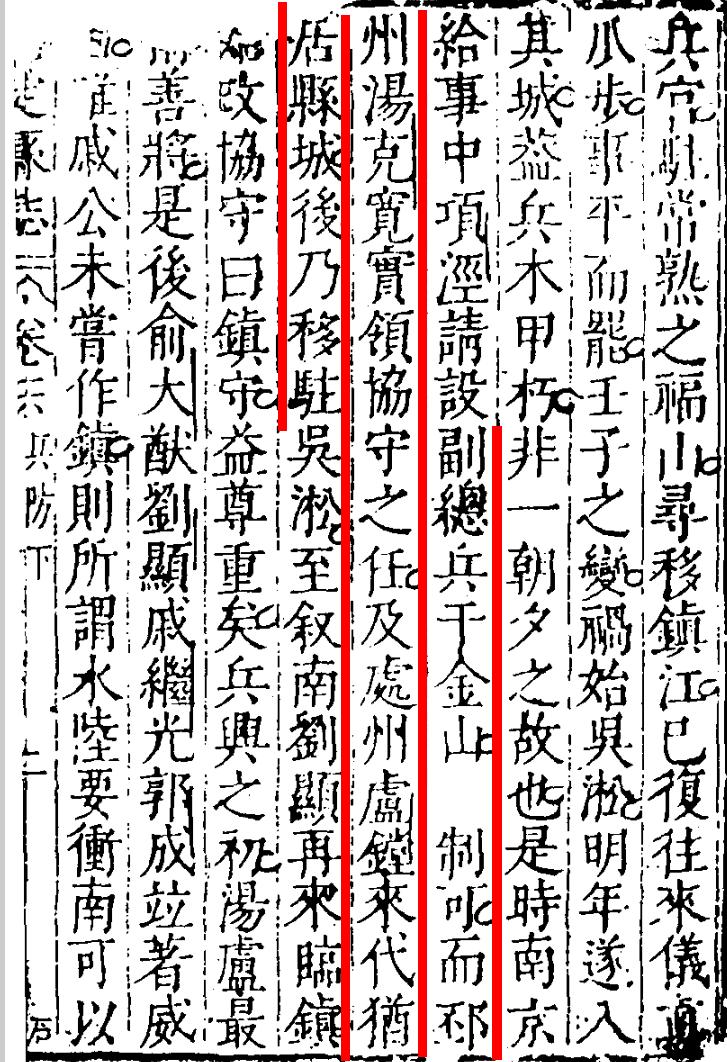 兵宂駐常熟之福山尋移鎮江已復往來儀真
瓜步事平而罷壬子之變禍始吳淞明年遂入
其城葢兵木甲朽非一朝夕之故也是時南京
給事中項涇請設副總兵于金山 制可而邳
州湯克寛實領協守之任及處州盧鏜來代猶
居縣城後乃移駐吳淞至叙南劉顯再來臨鎮
始改協守曰鎮守益尊重矣兵興之初湯盧最
善將是後俞大猷劉顯戚繼光郭成竝著威
戚公未嘗作鎮則所謂水陸要衝南可以
卷 兵防下